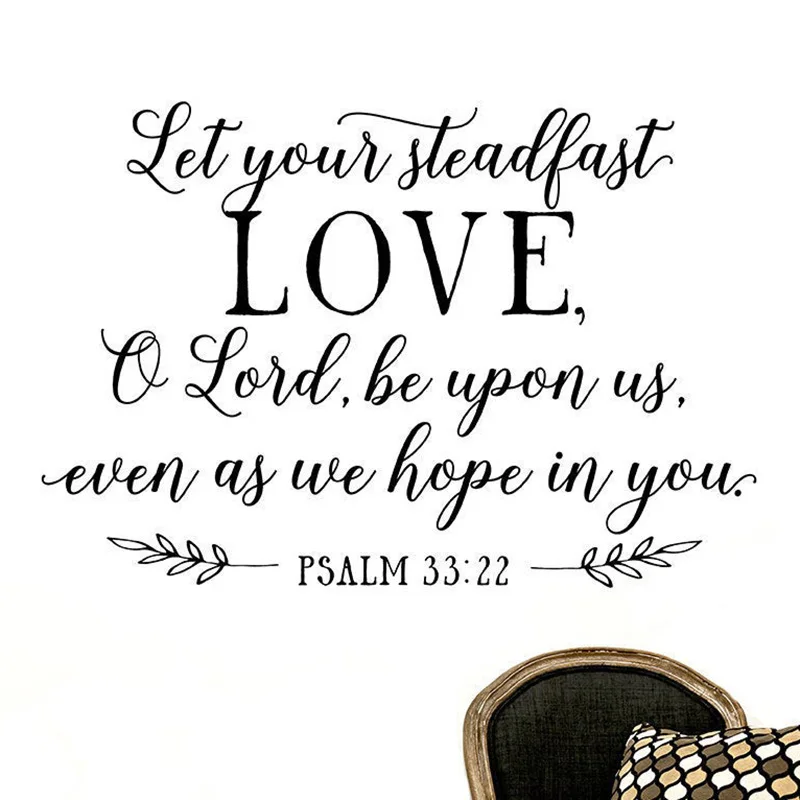 Let your steadfast
LOVE,
O Lord, be upon us,
even as we hope in you.
PSALM 33:22